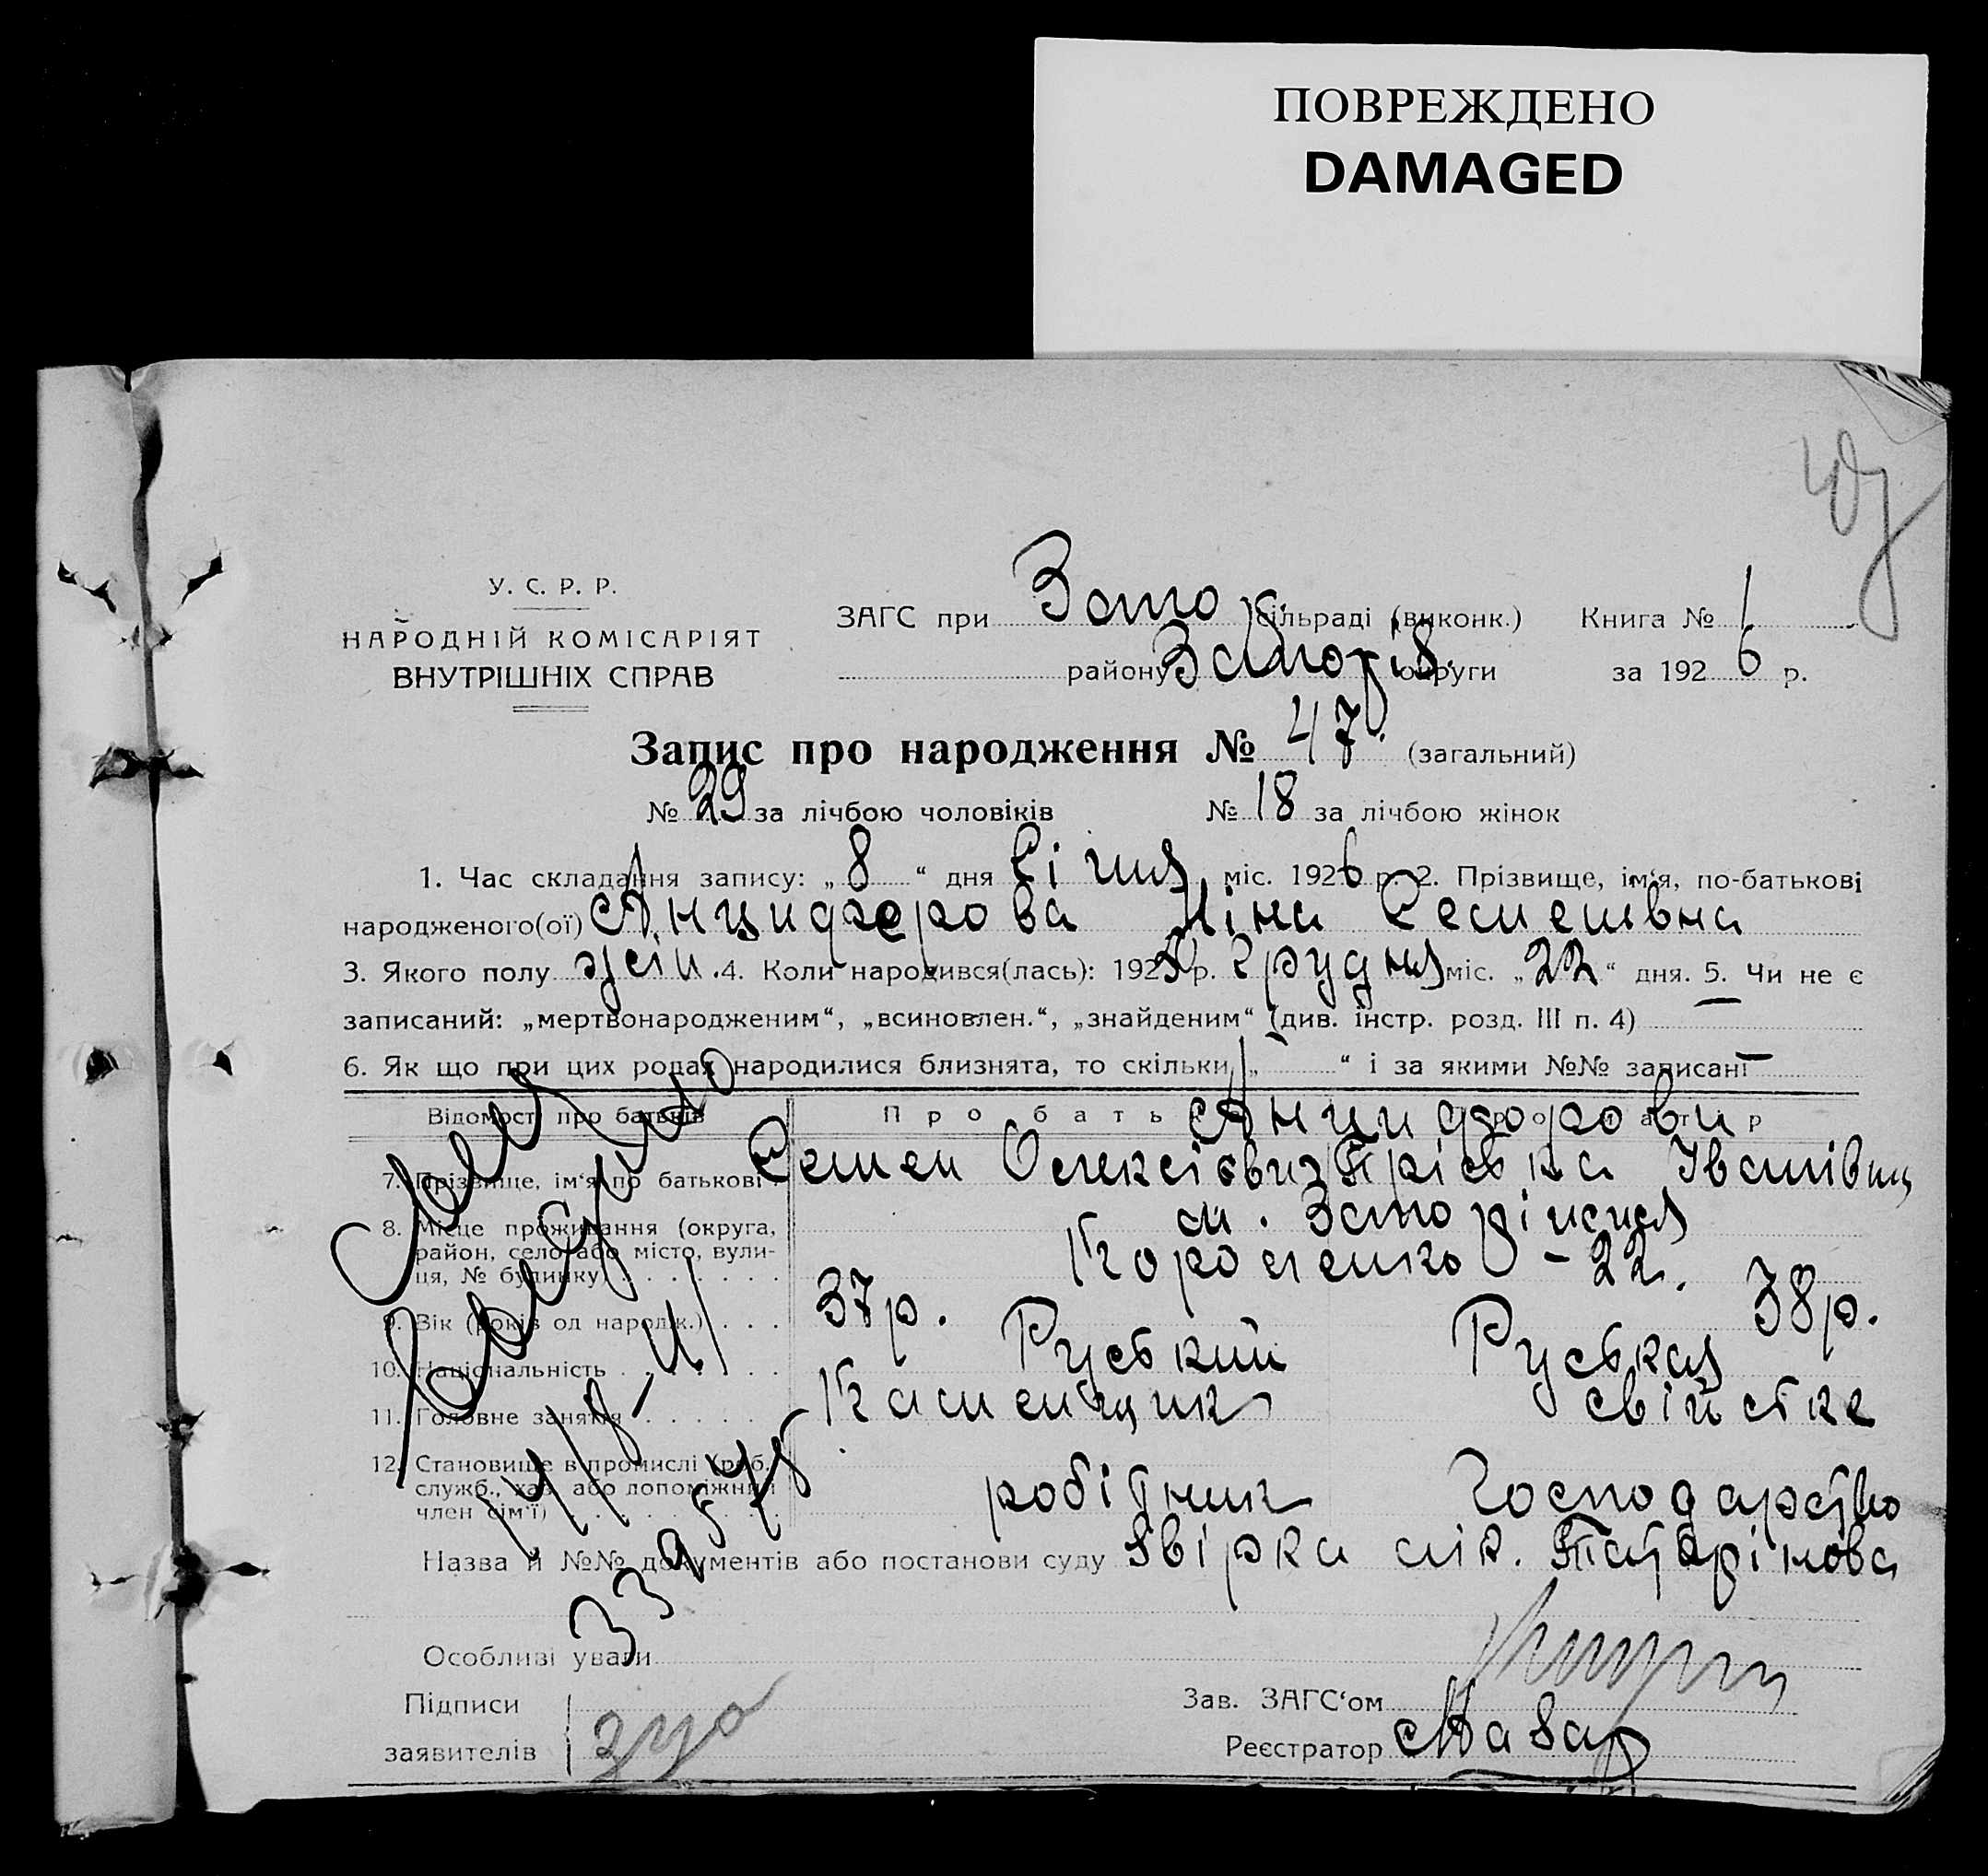 ПОВРЕЖДЕНО
DAMAGED
У. С. Р. Р.
НАРОДНІЙ КОМІСАРІЯТ
ВНУТРІШНІХ СПРАВ
ЗАГС при Запо сільраді (виконк.) Книга № 1
району Запоріз. округи за 1926 р.
Запис про народження № 47. (загальний)
№ 29 за лічбою чоловіків № 18 за лічбою жінок
1. Час складання запису: „8“ дня Січня міс. 1926 р. 2. Прізвище, ім'я, по-батькові
народженого(ої) Анциферова Ніна Семенівна
3. Якого полу жін. 4. Коли народився(лась): 1925 р. грудня міс. „22“ дня. 5. Чи не є
записаний: „мертвонародженим“, „всиновлен.“, „знайденим“ (див. інстр. розд. III п. 4) —
6. Як що при цих родах народилися близнята, то скільки „—“ і за якими №№ записані —
Відомості про батьків Про бать Анциферови
7. Прізвище, ім'я по батькові Семен Олексієвич Івановна
8. Місце проживання (округа, м. Запоріжжя
район, село або місто, вули-
ця, № будинку) Короленко - 22.
9. Вік (років од народж.) 37 р. 38 р.
10. Національність Руський Руськая
11. Головне заняття Каменщик свійстке
12. Становище в промислі (роб.,
служб., хаз. або допоміжний робітник Господарство
член сім'ї)
Назва й №№ документів або постанови суду Звірка лік. Татарінова
Особливі уваги
Підписи
заявителів
Зав. ЗАГС'ом
Реєстратор